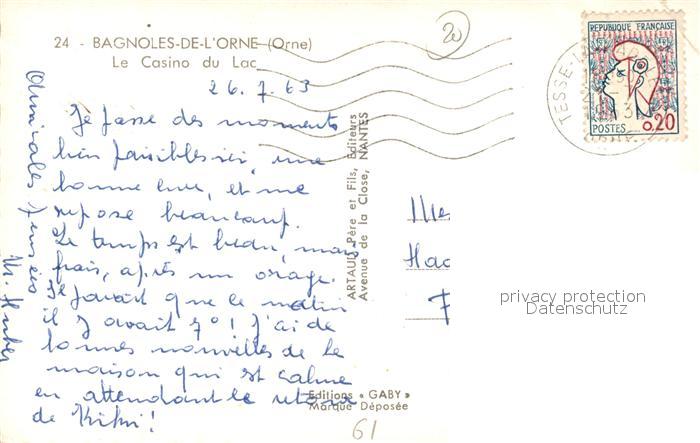 24 - BAGNOLES-DE-L'ORNE (Orne)
Le Casino du Lac
20
REPUBLIQUE FRANÇAISE
POSTES 0,20
TESSE-L
26.7.63
Je passe des moments
bien paisibles ici, une
bonne cure, et me
repose beaucoup.
Le temps est beau, mais
frais, après un orage.
Il paraît que ce matin
il y avait 7°! J'ai de
bonnes nouvelles de la
maison qui est calme
en attendant le retour
de Kiki!
Amicales pensées
M.
ARTAUD Père et Fils, Editeurs
Avenue de la Close, NANTES
Editions « GABY »
Marque Déposée
61
privacy protection
Datenschutz